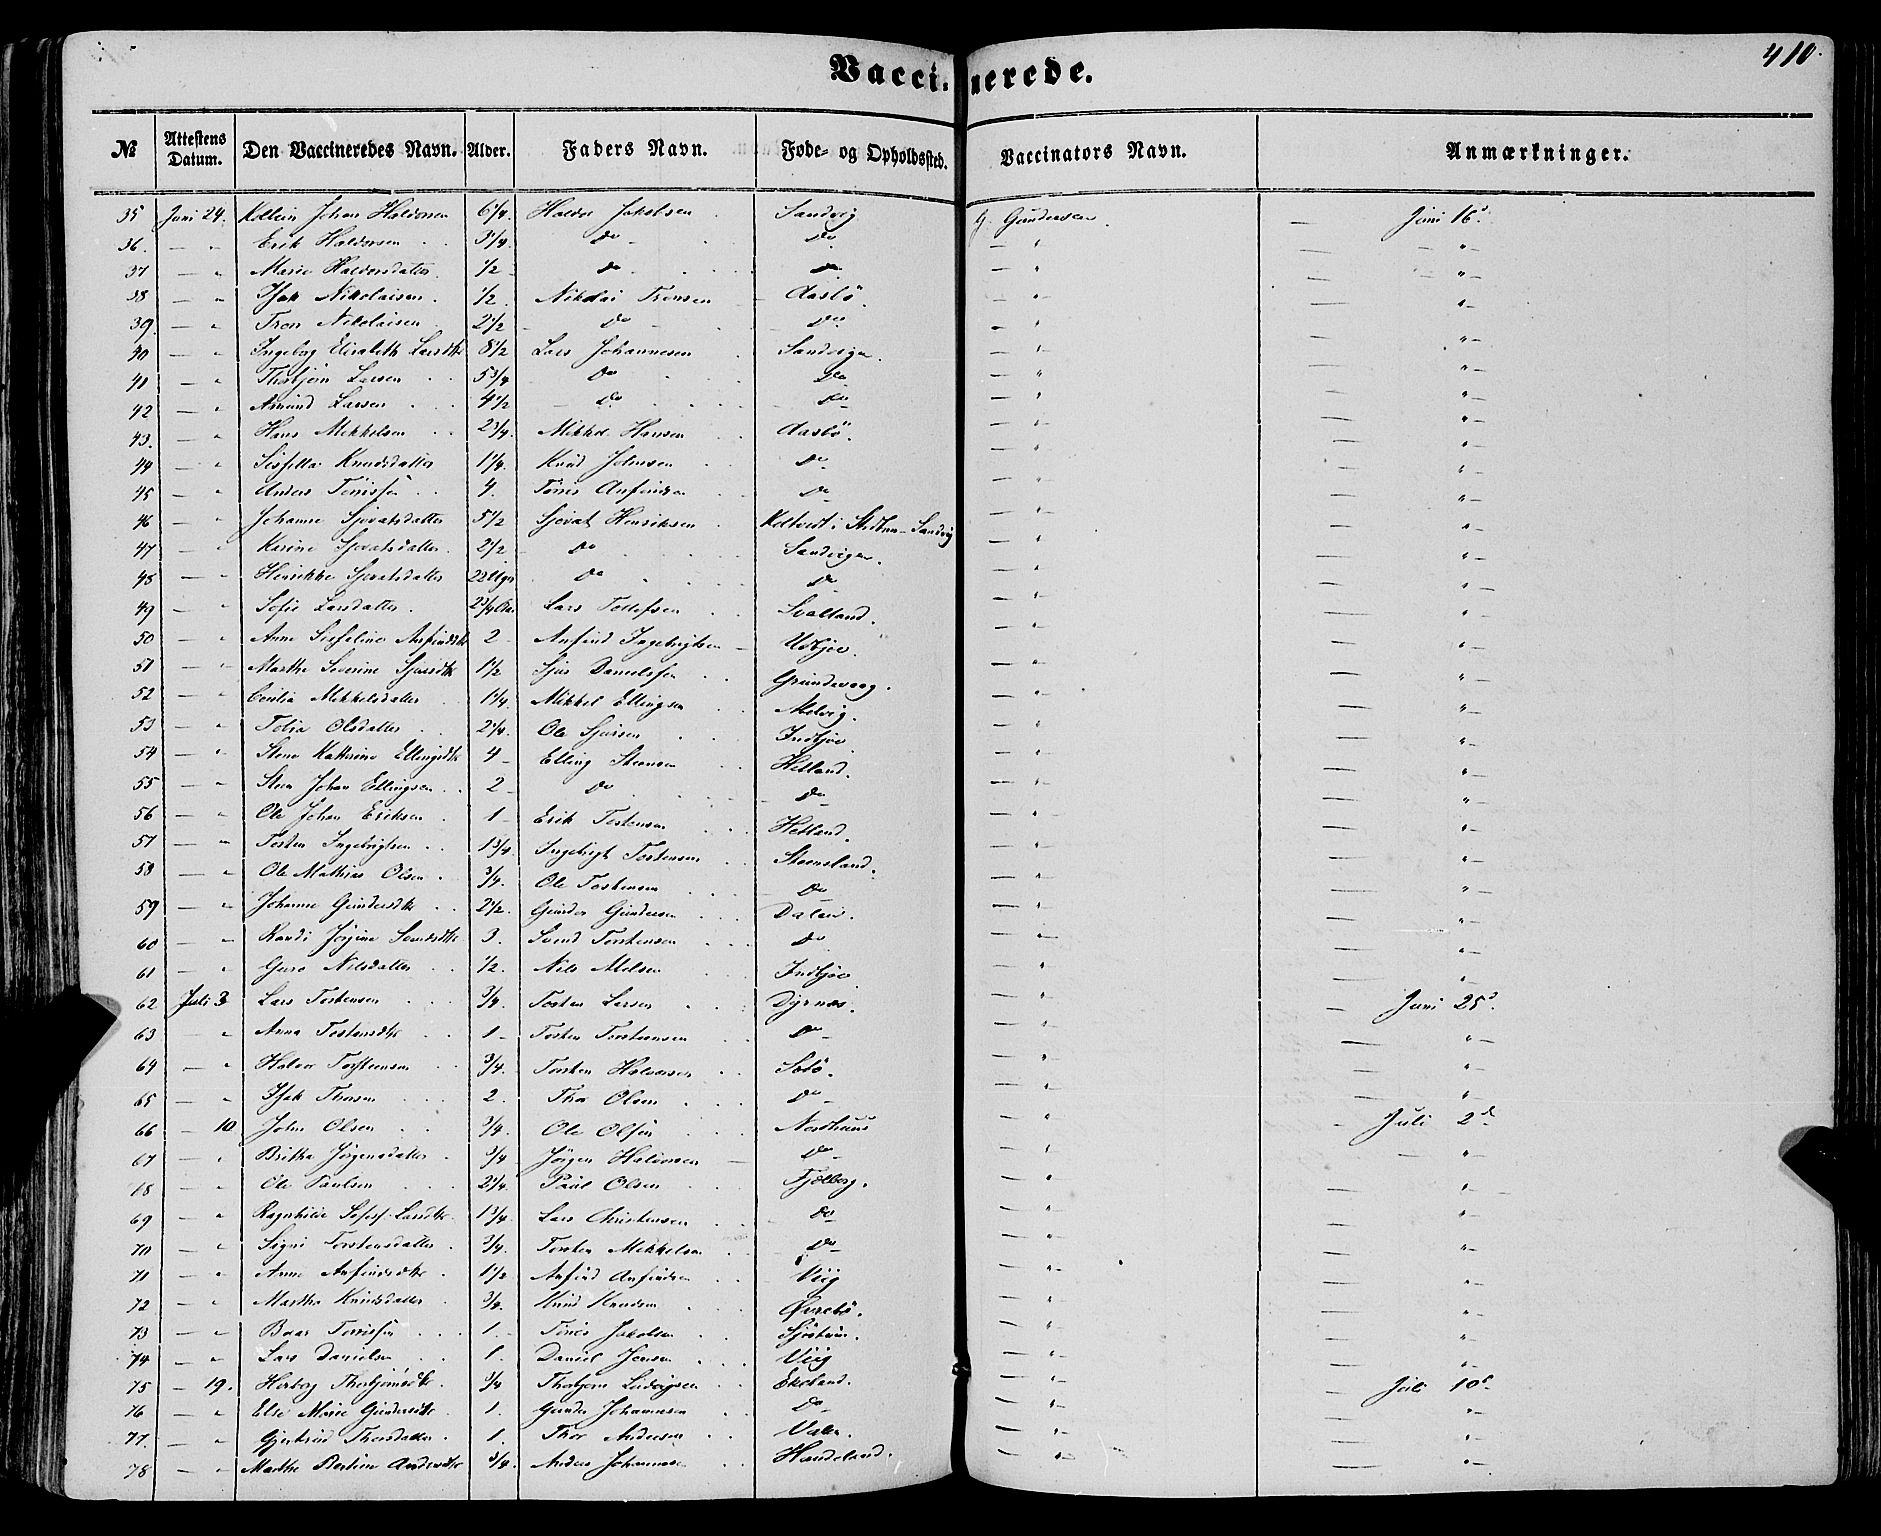 Vaccinerede.
410.
№ Attestens Datum. Den Vaccineredes Navn. Alder. Faders Navn. Føde- og Opholdssted. Vaccinators Navn. Anmærkninger.
35 Juni 24. Johan Haldorsen 6¼. Haldor Jakobsen Sandvig G. Gundersen Juni 16d
36. — " Erik Haldorsen 3¼. Do Do — " — " —
37 — " Marie Haldorsdatter ½ Do Do — " — " —
38 — " Isak Nikolaisen ½ Nikolai Tronsen Aasbö. — " — " —
39. — " Tron Nikolaisen 2½ Do Do — " — " —
40 — " Ingeborg Elisabeth Larsdtr 8½ Lars Johannesen Sandvigen. — " — " —
41 — " Thorbjörn Larsen 5¾ Do Do — " — " —
42 — " Amund Larsen 4½ Do Do — " — " —
43. — " Hans Mikkelsen 2¾. Mikkel Hansen Aasbö. — " — " —
44 — " Knudsdatter 1¼. Knud Johnsen Do — " — " —
45 — " Anders Törrissen 4. Törris Anfindsen Do — " — " —
46 — " Johanne Sjovatsdatter 5½ Sjovat Henriksen i Sandvig — " — " —
47 — " Karine Sjovatsdatter 2½ Do Sandvigen — " — " —
48 — " Henrikke Sjovatsdatter 22 Ugr Do Do — " — " —
49 — " Sofie Larsdatter 2¾ Lars Tollefsen Svalland. — " — " —
50 — " Anne Anfindsdtr 2 Anfind Ingebrigtsen Udbjoe. — " — " —
51 — " Marthe Severine Sjursdtr 1½ Sjur Danielssen Grundevaag. — " — " —
52 — " Cecilia Mikkelsdatter 1¼ Mikkel Ellingsen Melvig. — " — " —
53 — " Olsdatter 2¼. Ole Sjursen Indbjoe — " — " —
54 — " Stene Kathrine Ellingsdtr 4 Elling Steensen Hetland. — " — " —
55 — " Steen Johan Ellingsen 2 Do Do — " — " —
56 — " Ole Johan Eriksen 1 Erik Tostensen Hetland. — " — " —
57 — " Tosten Ingebrigtsen 1¾. Ingebrigt Tostensen Steensland. — " — " —
58 — " Ole Mathias Olsen ¾. Ole Tostensen Do — " — " —
59 — " Johanne Gundersdtr 2½. Gunder Gundersen Dalen. — " — " —
60 — " Randi Jörgine Svendsdtr 3. Svend Torstensen Do — " — " —
61 — " Guro Nilsdatter ½. Nils Nilsen Indbjoe — " — " —
62 Juli 3 Lars Tostensen ¾. Tosten Larsen Dyrnæs. — " — Juni 25d
63 — " Anna Tostensdtr 1 Tosten Torstensen Do — " — " —
64 — " Halvor Torsteensen ¾. Torsten Halvorsen — " — " —
65 — " Isak Thorsen 2. Thor Olsen Do — " — " —
66 — 10 John Olsen ¾. Ole Olsen Nordhuus — " — Juli 2d
67 — " Britha Jörgensdatter ¾ Jörgen Halvorsen Do — " — " —
68 — " Ole Paulsen 2¼. Paul Olsen Fjelberg. — " — " —
69 — " Ragnhilde Larsdtr. 1¾. Lars Christensen Do — " — " —
70 — " Signi Torstensdatter ¾. Torsten Mikkelsen Do — " — " —
71 — " Anne Anfindsdtr 1½ Anfind Anfindsen Viig — " — " —
72 — " Martha Knudsdatter ¾. Knud Knudsen Øvrebö. — " — " —
73 — " Baar Törrissen 1. Törris Jakobsen — " — " —
74 — " Lars Danielsen 1. Daniel Jensen Viig — " — " —
75 — 19. Herborg Thorbjörnsdtr. ¾ Thorbjörn Ludvigsen Ekeland. — " — Juli 10d
76 — " Else Marie Gundersdtr 1. Gunder Johannesen Do — " — " —
77. — " Gjertrud Thorsdatter 1. Thor Andersen Valen. — " — " —
78 — " Marthe Andersdtr ¾. Anders Johannesen Handeland. — " — " —